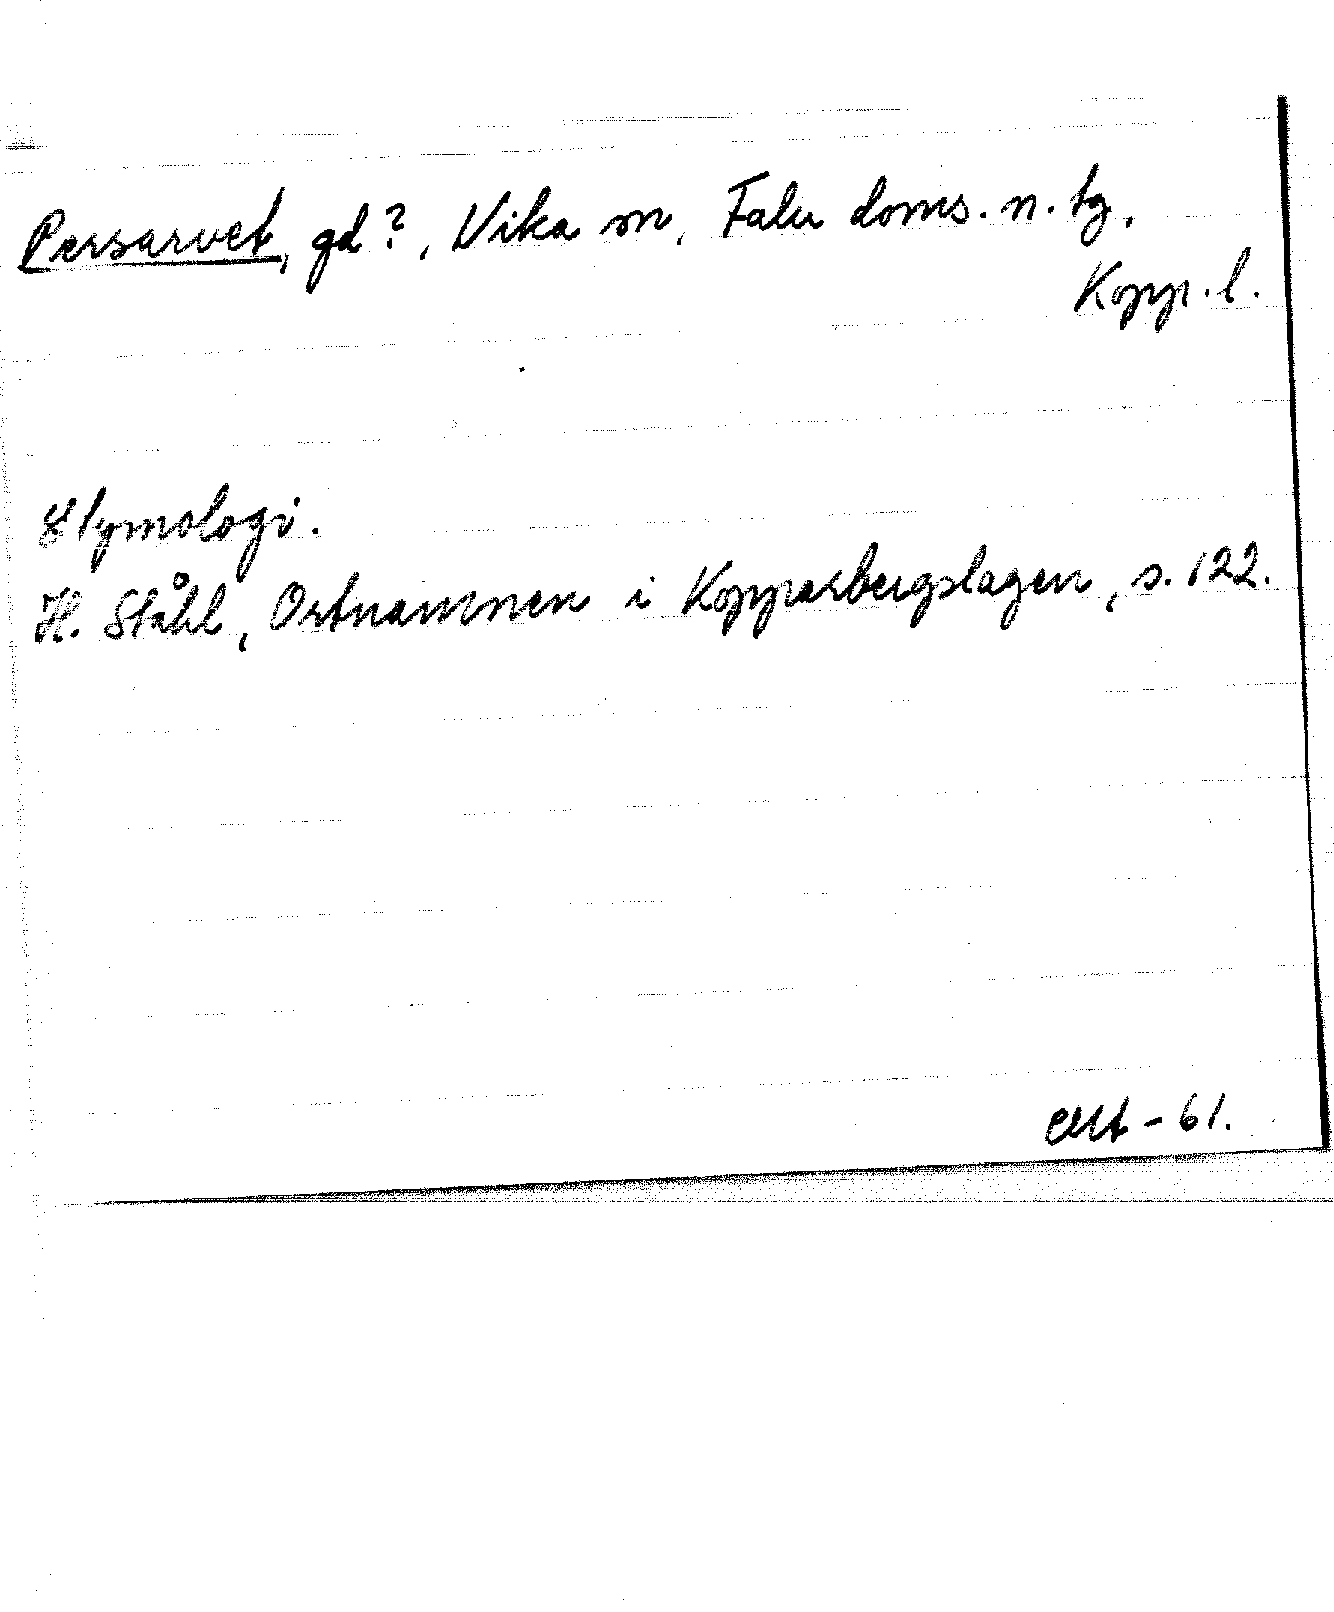 Persarvet, gd?, Vika sn, Falu doms. n. tg,
Kopp. l.
Etymologi.
H. Ståhl, Ortnamnen i Kopparbergslagen, s. 122.
- 61.